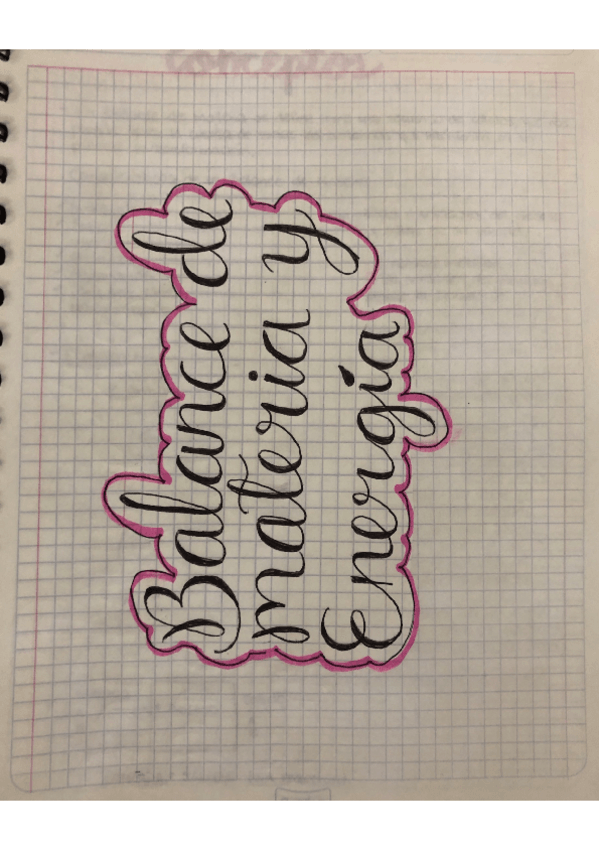 Balance de
materia y
Energía